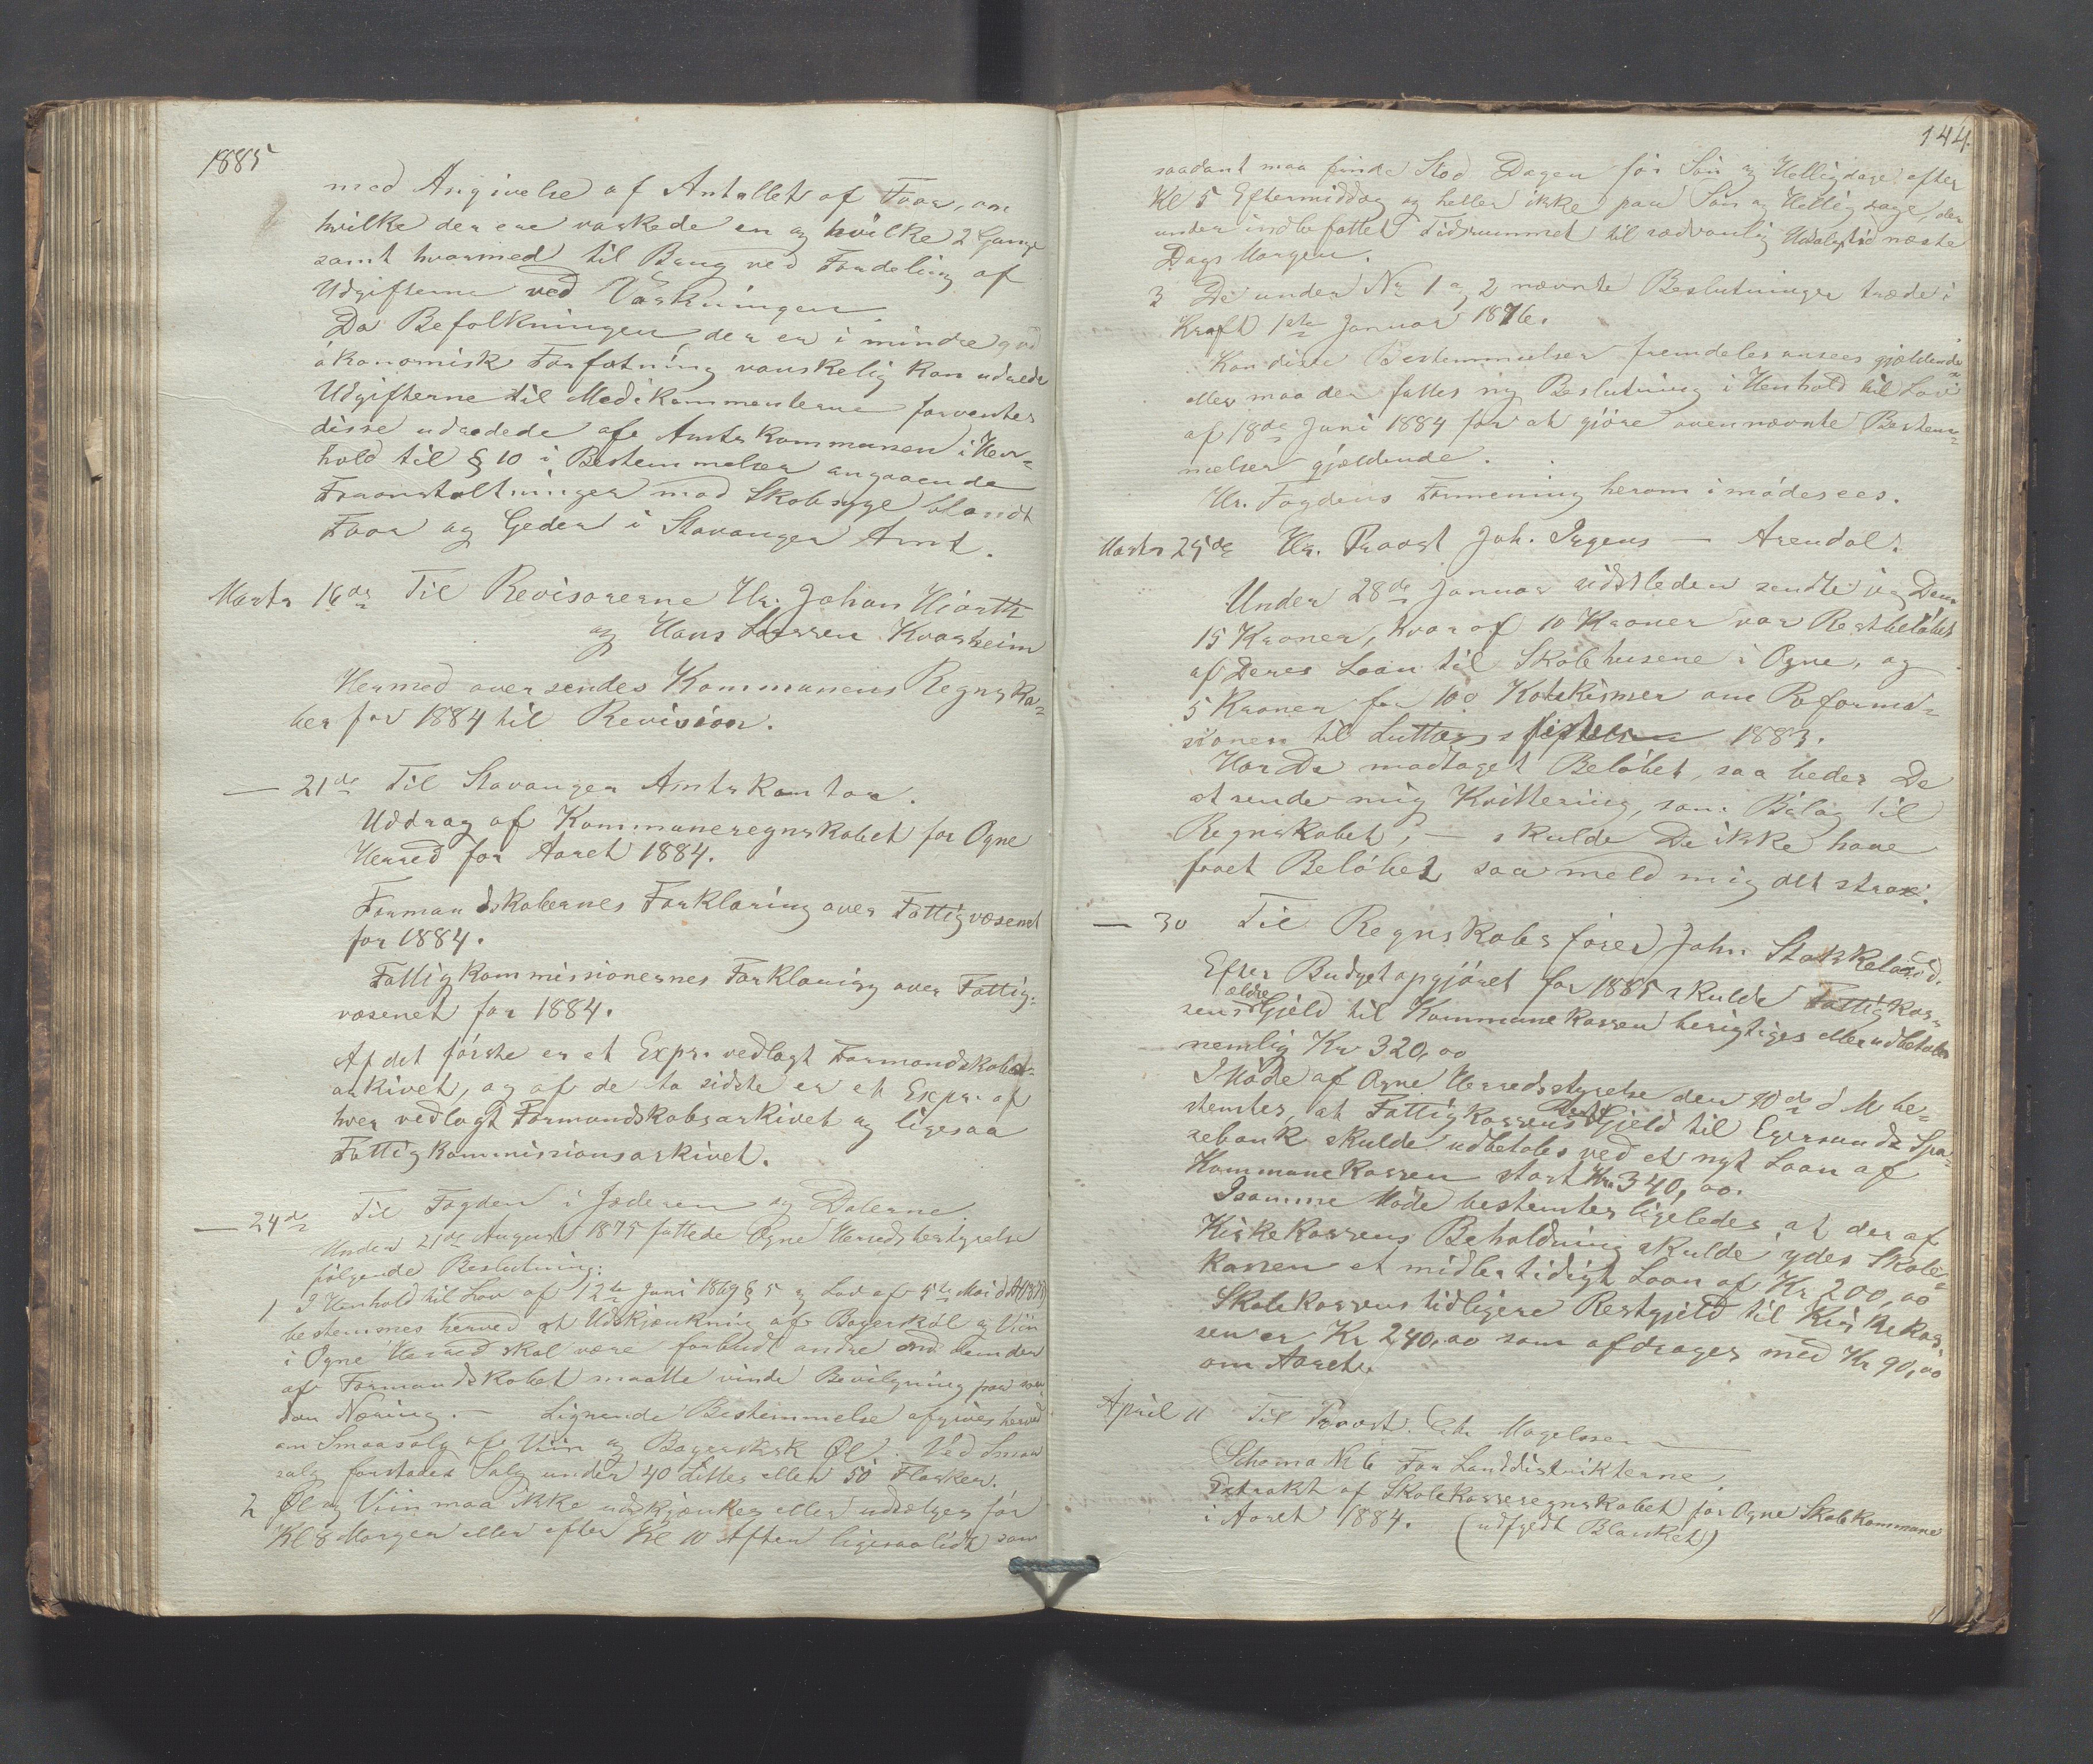 1885
med Angivelse af Antallet af Faar, om
hvilke der ere vaskede en og hvilke 2 Gange
samt hvormed til Brug ved Fordeling af
Udgifterne ved Vaskningen.
Da Befolkningen, der er i mindre god
økonomisk Forfatning vanskelig kan udrede
Udgifterne til Medikamenterne forventes
disse udredede af Amtskommunen i Hen=
hold til § 10 i Bestemmelser angaaende
Foranstaltninger mod Skabsyge blandt
Faar og Geder i Stavanger Amt.
Marts 16de Til Revisorerne Hr. Johan Hiorth
og Hans Larssen Kvasheim
Hermed oversendes Kommunens Regnska=
ber for 1884 til Revision.
— 21de Til Stavanger Amtskontor.
Uddrag af Kommuneregnskabet for Ogne
Herred for Aaret 1884.
Formandskabernes Forklaring over Fattigvæsenet
for 1884.
Fattigkommissionernes Forklaring over Fattig=
væsenet for 1884.
Af det første er et Expr. vedlagt Formandskabs=
arkivet, og af de to sidste er et Expr. af
hver vedlagt Formandskabsarkivet og ligesaa
Fattigkommissionsarkivet.
— 24de Til Fogden i Jæderen og Dalerne
Under 21de August 1875 fattede Ogne Herredsbestyrelse
følgende Beslutning:
1 I Henhold til Lov af 12te Juni 1869 § 5 og Lov af 5te Mai
bestemmes herved at Udskjænkning af Bayerskøl og Viin
i Ogne Herred skal være forbudt andre end dem der
af Formandskabet maatte vinde Bevilgning paa saa=
dan Næring. — Lignende Bestemmelse afgives herved
om Smaasalg af Viin og Bayersksk Øl. Ved Smaa
salg forstaaes Salg under 40 Litter eller 50 Flasker.
2 Øl og Viin maa ikke udskjænkes eller udsælges før
Kl 8 Morgen eller efter Kl 10 Aften ligesaalidt som
144.
saadant maa finde Sted Dagen før Søn og Helligdage efter
Kl 5 Eftermiddag og heller ikke paa Søn og Helligdage, der
under indbefattet Tidsrummet til sædvanlig Udsalgstid næste
Dags Morgen.
3 De under No 1 og 2 nævnte Beslutninger træde i
Kraft 1ste Januar 1876.
Kan disse Bestemmelser fremdeles ansees gjældende
eller maa der fattes ny Beslutning i Henhold til Lov
af 18de Juni 1884 for at gjøre ovennævnte Bestem=
melser gjældende.
Hr. Fogdens Formening herom imødesees.
Marts 25de Hr. Provst Joh. Irgens — Arendal.
Under 28de Januar sidstleden sendte jeg Dem
15 Kroner, hvoraf 10 Kroner var Restbeløbet
af Deres Laan til Skolehusene i Ogne, og
5 Kroner for 100 Katekismer om Reforma=
sionen til Luthers 1883.
Har De modtaget Beløbet, saa beder De
at sende mig Kvittering, som Bilag til
Regnskabet; — skulde De ikke have
faaet Beløbet saa meld mig det strax.
— 30 Til Regnskabsfører John Stokkeland.
Efter Budgetopgjøret for 1885 skulde Fattigkas=
sens ældre Gjeld til Kommunekassen berigtiges eller udbetales
nemlig Kr 320,00
I Møde af Ogne Herredsstyrelse den 10de d M be=
stemtes, at Fattigkassens Rest Gjeld til Egersunds Spa=
rebank skulde udbetales ved et nyt Laan af
Kommunekassen stort Kr 340,00.
I samme Møde bestemtes ligeledes at der af
Kirkekassens Beholdning skulde ydes Skole=
kassen et midlertidigt Laan af Kr 200,00
Skolekassens tidligere Restgjeld til Kirkekas=
sen er Kr 240,00 som afdrages med Kr 90,00
om Aaret.
April 11 Til Provst Chr Magelssen
Schema No 6 For Landdistrikterne.
Extrakt af Skolekasseregnskabet for Ogne Skolekommune
i Aaret 1884. (udfyldt Blanket)